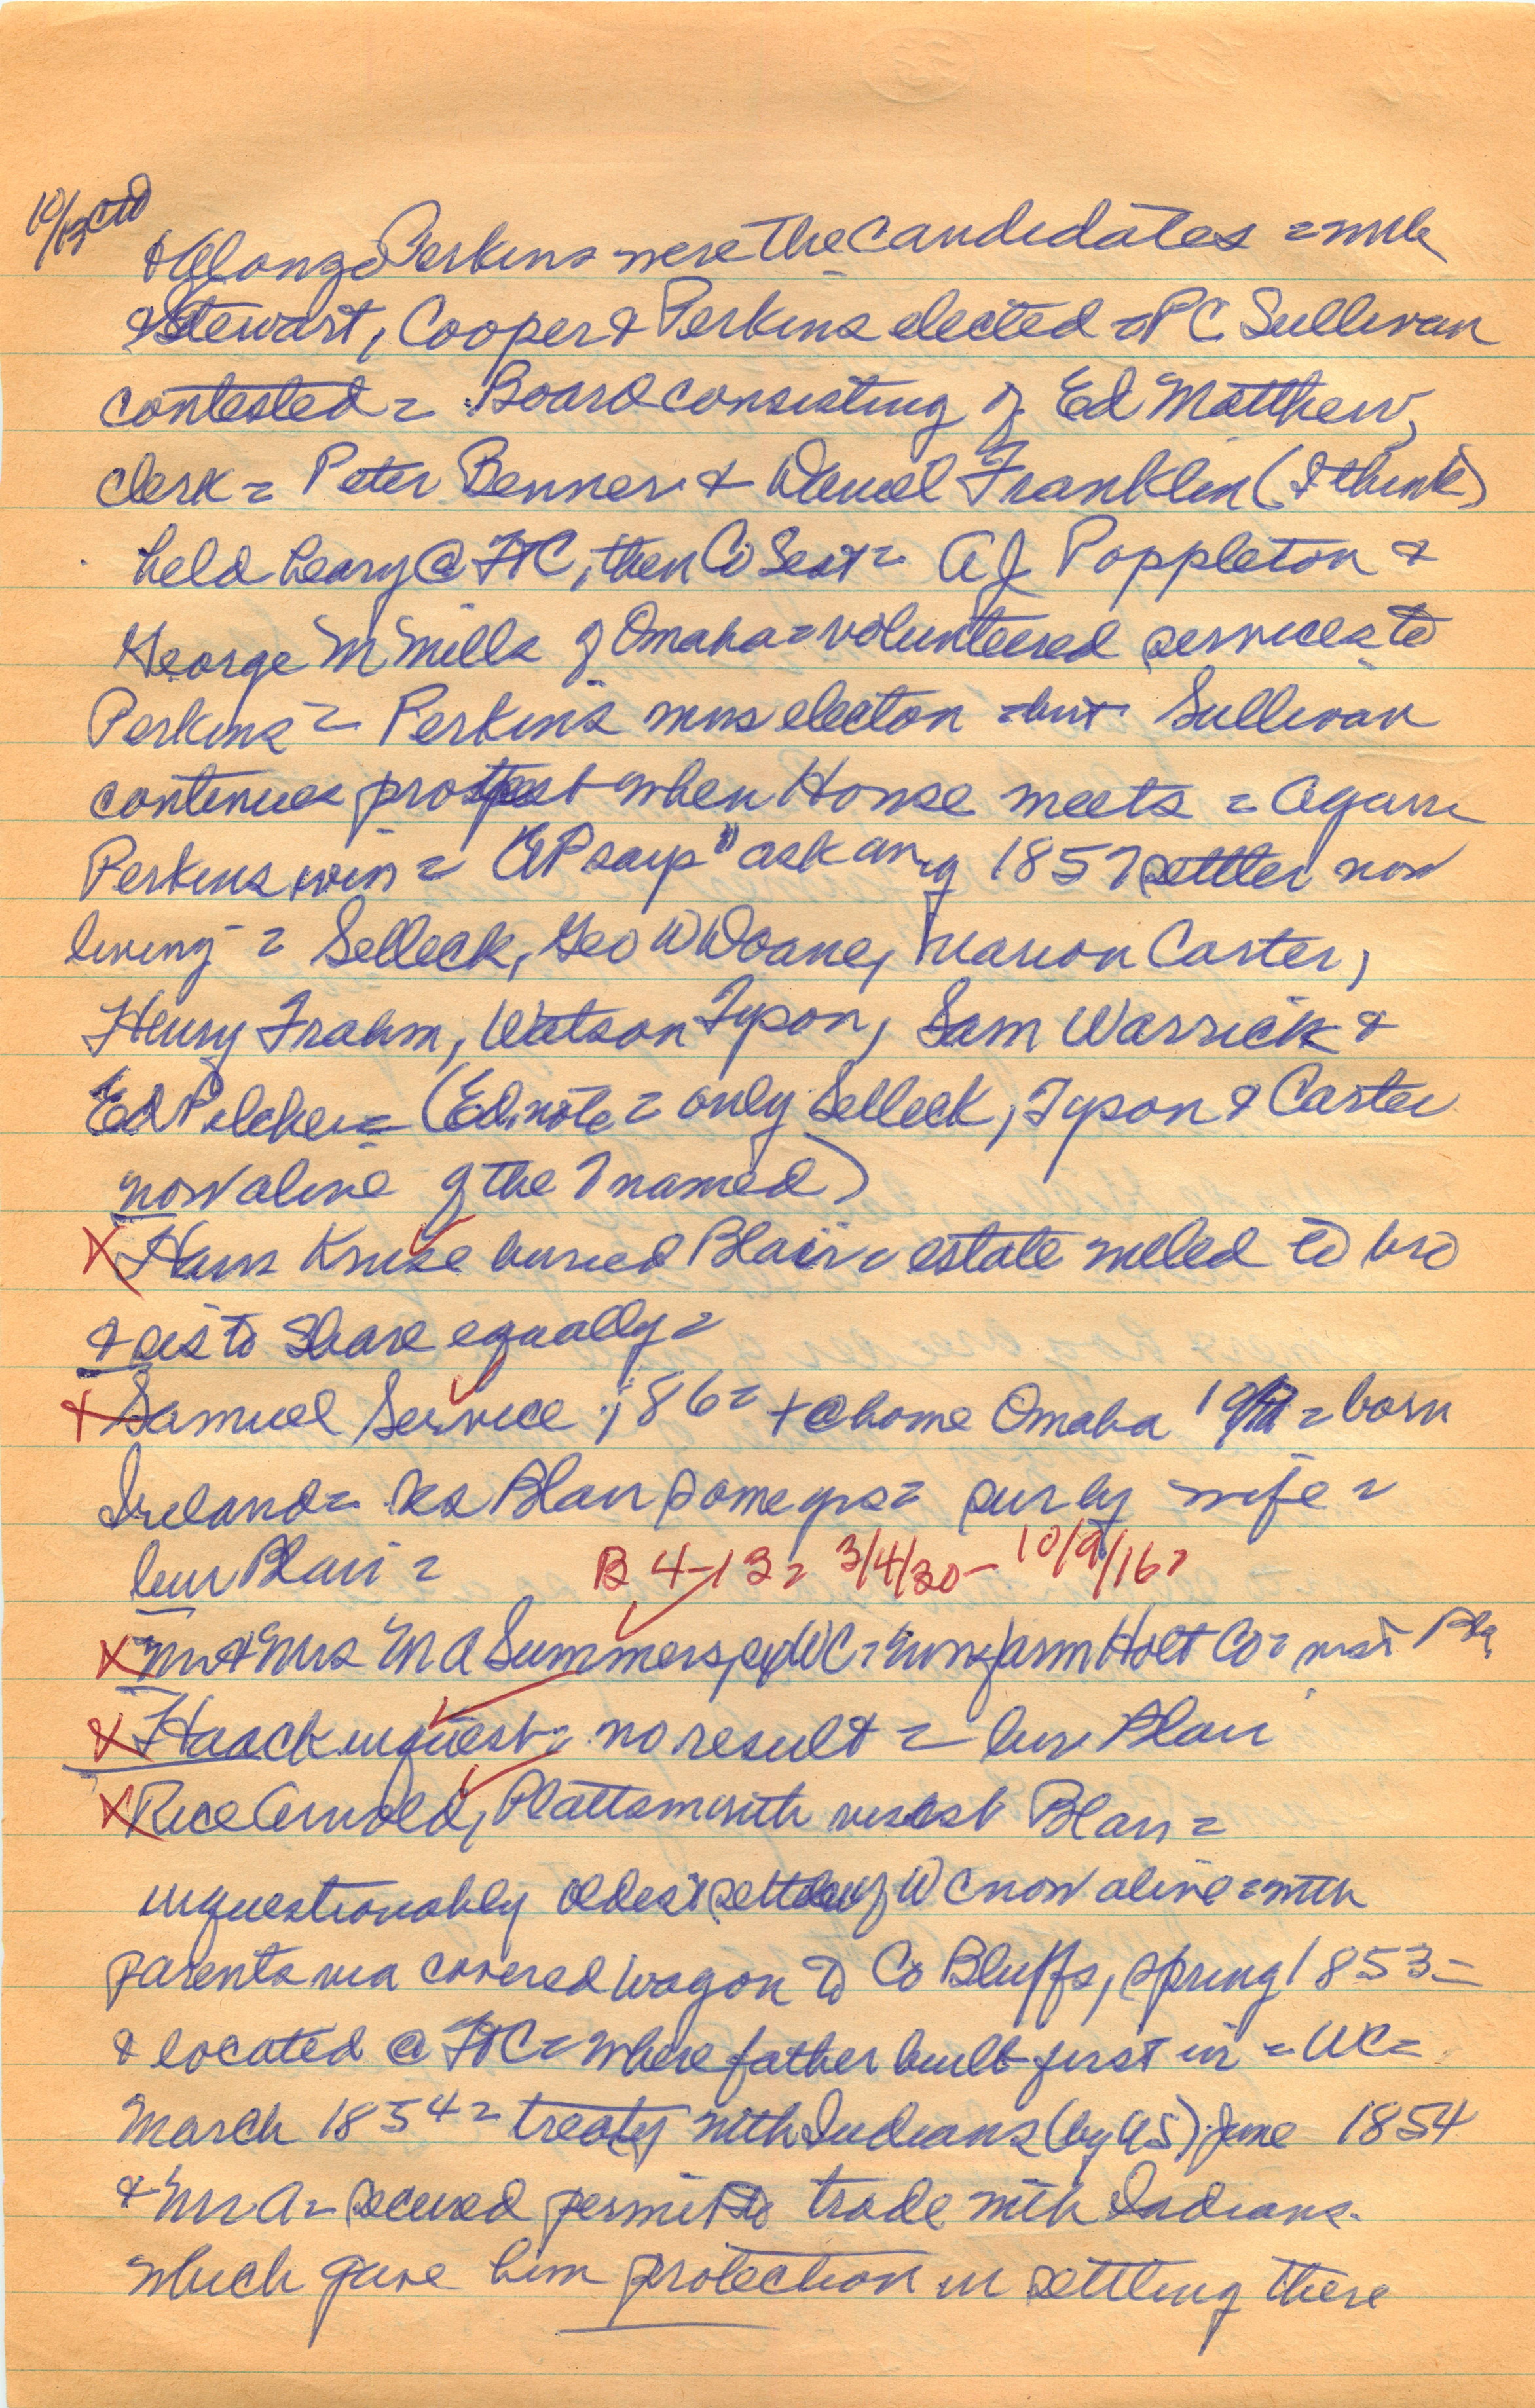 10/13 ctd
& Alonzo Perkins were the candidates = with
& Stewart, Cooper & Perkins elected = PC Sullivan
contested = Board consisting of Ed Matthew,
clerk = Peter Benner & Daniel Franklin (I think)
held hearg @ FtC, then Co Seat = A J Poppleton &
George M Mills of Omaha = volunteered services to
Perkins = Perkins wins electon = but Sullivan
continues protest when House meets = Again
Perkins win = AP says "ask any 1857 settler now
living" = Selleck, Geo W Doane, Marion Carter,
Henry Frahm, Watson Tyson, Sam Warrick &
Ed Pilcher = (Ed. note = only Selleck, Tyson & Carter
now alive of the 7 named)
X Hans Kruse buried Blair = estate willed to bro
& sis to share equally =
X Samuel Service, 86 = + @ home Omaha = born
Ireland = Res Blair some yrs = sur by wife =
bur Blair = B 4-13 = 3/4/30 - 10/9/16 =
X Mr & Mrs M A Summers, WC = farm Holt Co =
X Haack inquest = no result = bur Blair
X Rice Arnold, Plattsmouth visits Blair =
unquestionably oldest settler of WC now alive = with
parents via covered wagon to Co Bluffs, spring 1853 =
& located @ FtC = where father built first in = WC =
March 1854 = treaty with Indians (by US) June 1854
& Mr A = secured permit to trade with Indians.
which gave him protection in settling there